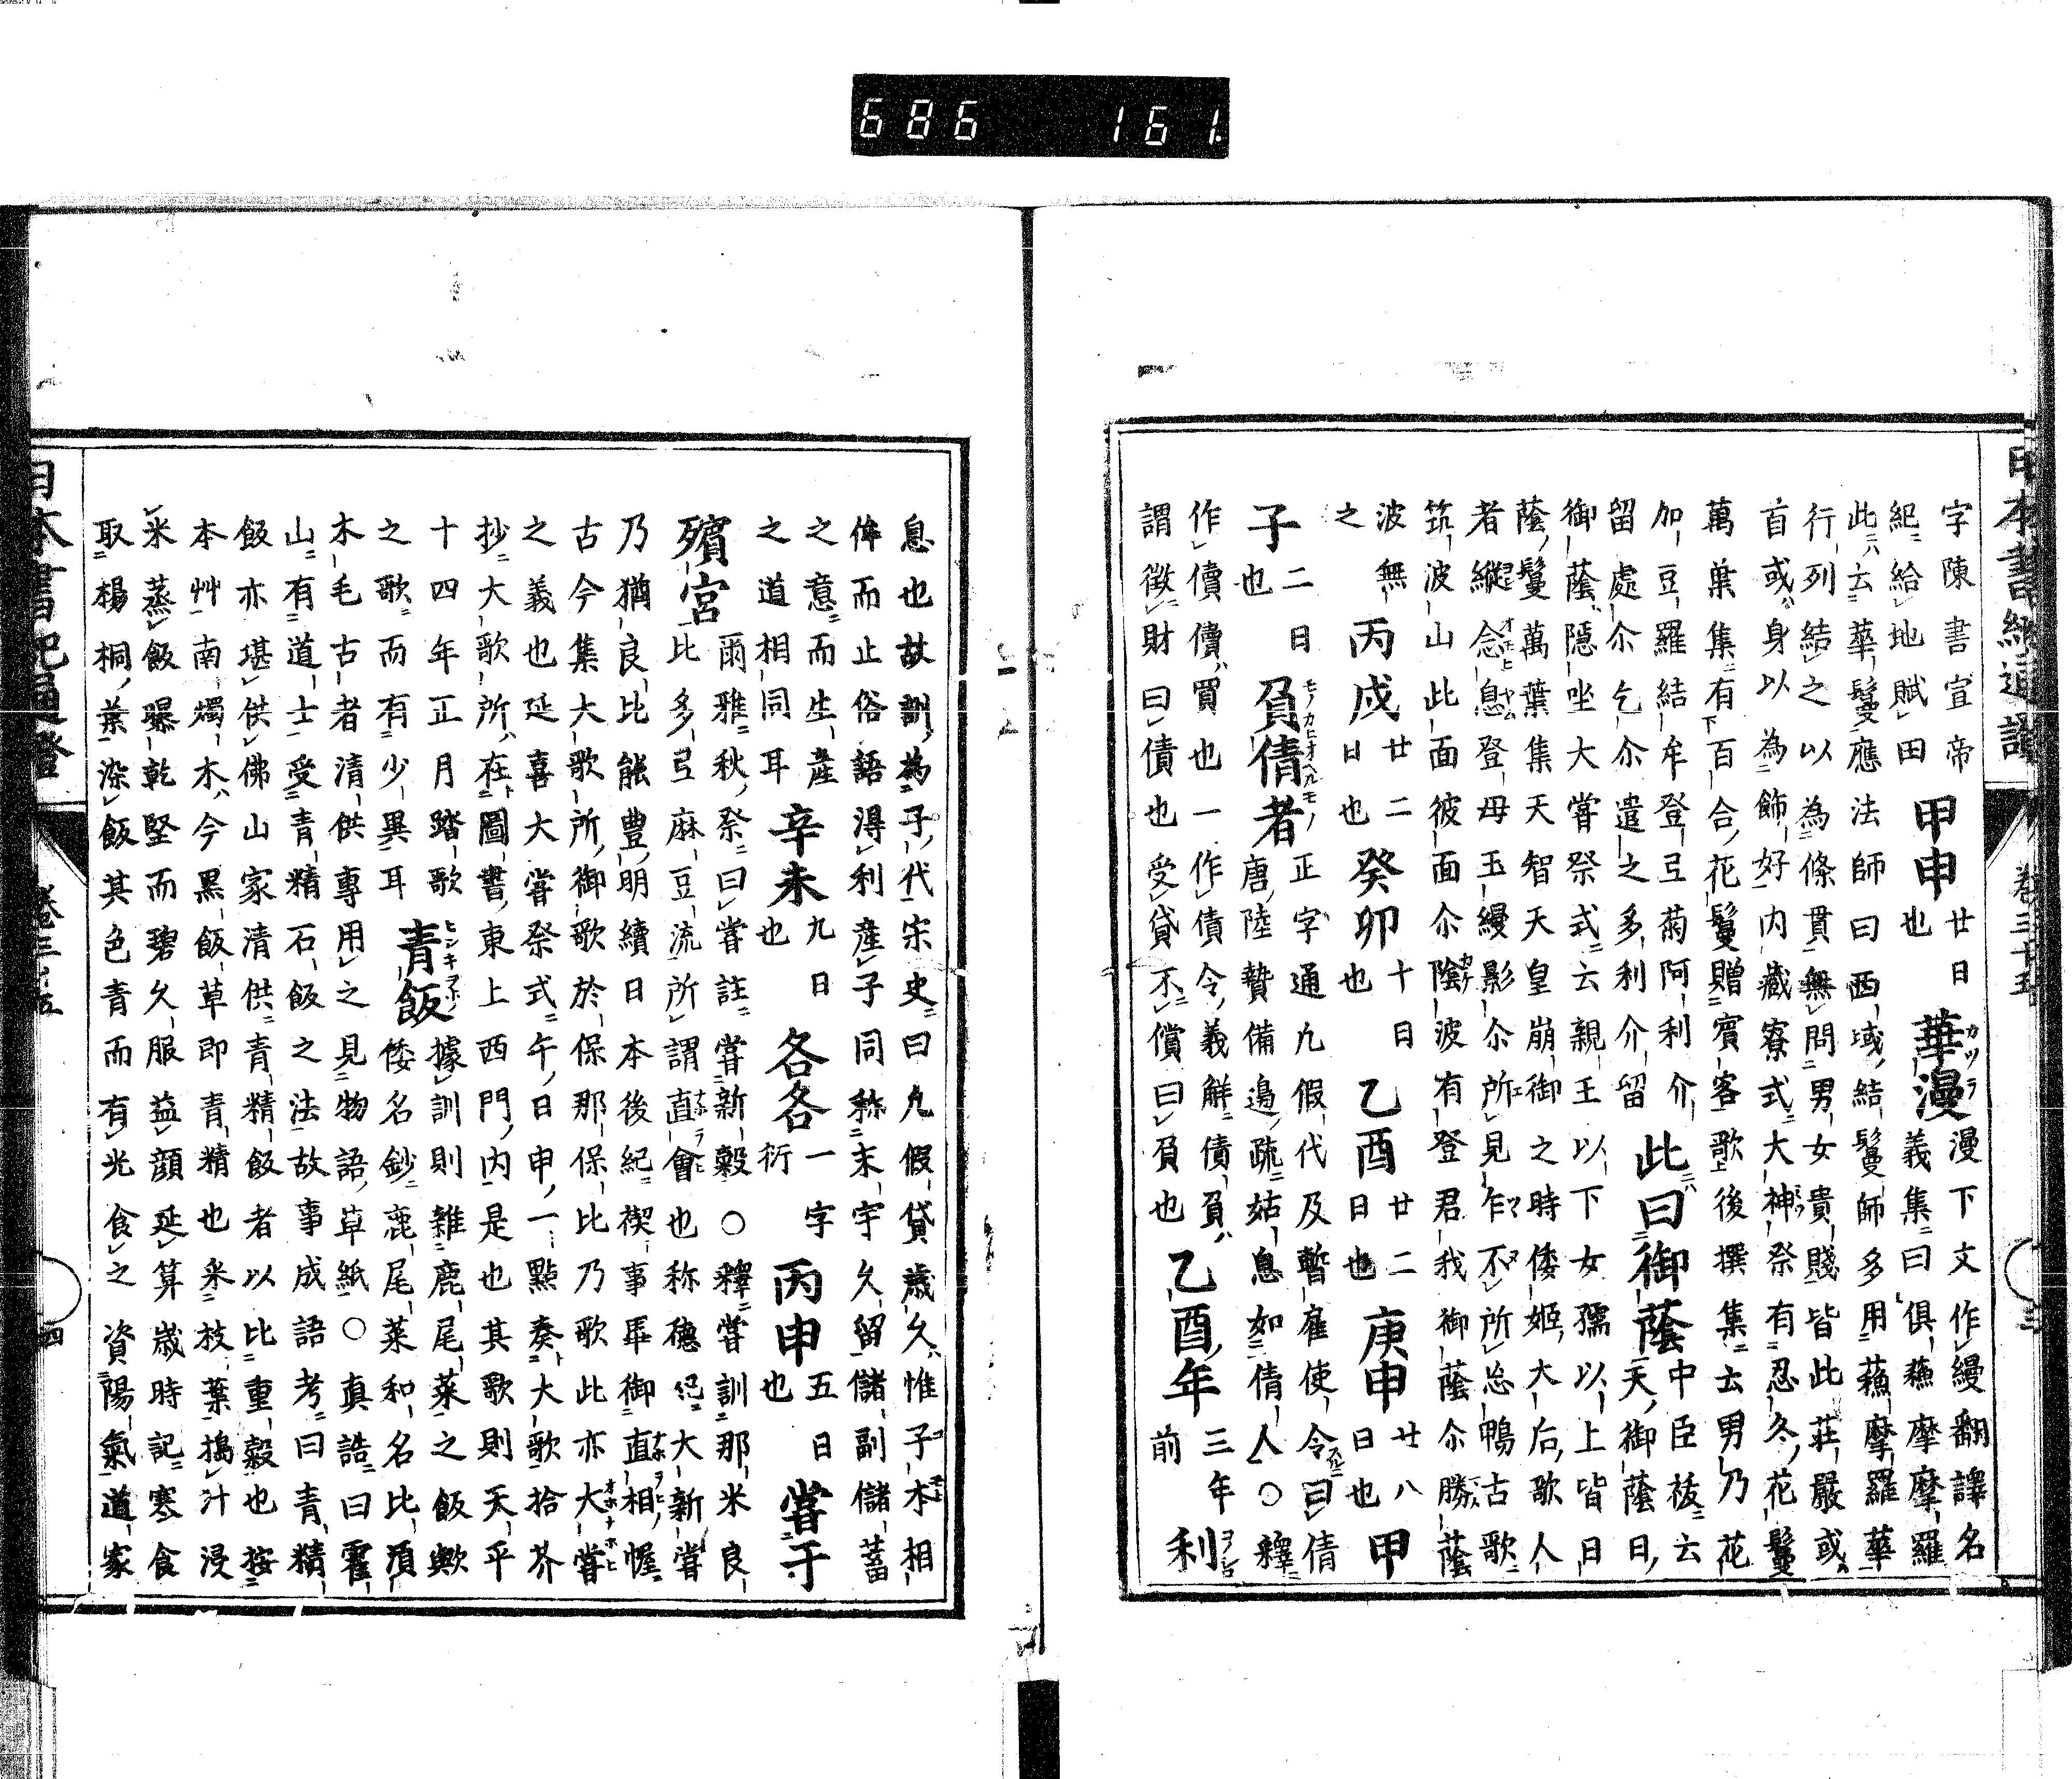 686 161.
日本書紀通證
卷三十五
三
字陳書宣帝
紀給地賦田
甲申
廿日
也
華漫
カツラ
漫下文作縵翻譯名
義集曰俱蘓摩摩羅
此云華鬘應法師曰西域結鬘師多用蘓摩羅華
行列結之以為條貫無問男女貴賤皆此莊嚴或
首或身以為飾好内藏寮式大神祭有忍冬花鬘
萬葉集有百合花鬘贈賓客歌後撰集云男乃花
加豆羅結牟登弖菊阿利介
留處尓乞尓遣之多利介留
此曰御蔭
中臣祓云
天御蔭日
御蔭隱坐大嘗祭式云親王以下女孺以上皆日
蔭鬘萬葉集天智天皇崩御之時倭姬大后歌人
者縱念息登母玉縵影尓所見乍不所忘鴨古歌
筑波山此面彼面尓陰波有登君我御蔭尓勝蔭
波無
之
丙戌
廿二
日也
癸卯
十日
也
乙酉
廿二
日也
庚申
廿八
日也
甲
子
二日
也
負債者
モノカヒオヘルモノ
正字通凡假代及暫雇使令曰倩
唐陸贄備邊疏姑息如倩人○釋
作價價買也一作債令義解債負
謂徵財曰債也受貸不償曰負也
乙酉年
三年
前
利
息也故訓為子代宋史曰凡假貸歳久惟子本相
侔而止俗語淂利産子同称末宇久留儲副儲蓄
之意而生産
之道相同耳
辛未
九日
也
各各
一字
衍
丙申
五日
也
嘗于
殯宮
爾雅秋祭曰嘗註嘗新穀○釋嘗訓那米良
比多弖麻豆流所謂直會也称德紀大新嘗
乃猶良比能豊明續日本後紀禊事畢御直相幄
古今集大歌所御歌於保那保比乃歌此亦大嘗
之義也延喜大嘗祭式午日申一點奏大歌拾芥
抄大歌所在圖書東上西門内是也其歌則天平
十四年正月踏歌
之歌而有少異耳
青飯
據訓則雜鹿尾菜之飯歟
倭名鈔鹿尾菜和名比湏
木毛古者清供專用之見物語草紙○真誥曰霍
山有道士受青精石飯之法故事成語考曰青精
飯亦堪供佛山家清供青精飯者以比重穀也按
本艸南燭木今黒飯草即青精也采枝葉搗汁浸
米蒸飯曝乾堅而碧久服益顔延算歳時記寒食
取楊桐葉染飯其色青而有光食之資陽氣道家
日本書紀通證
卷三十五
四